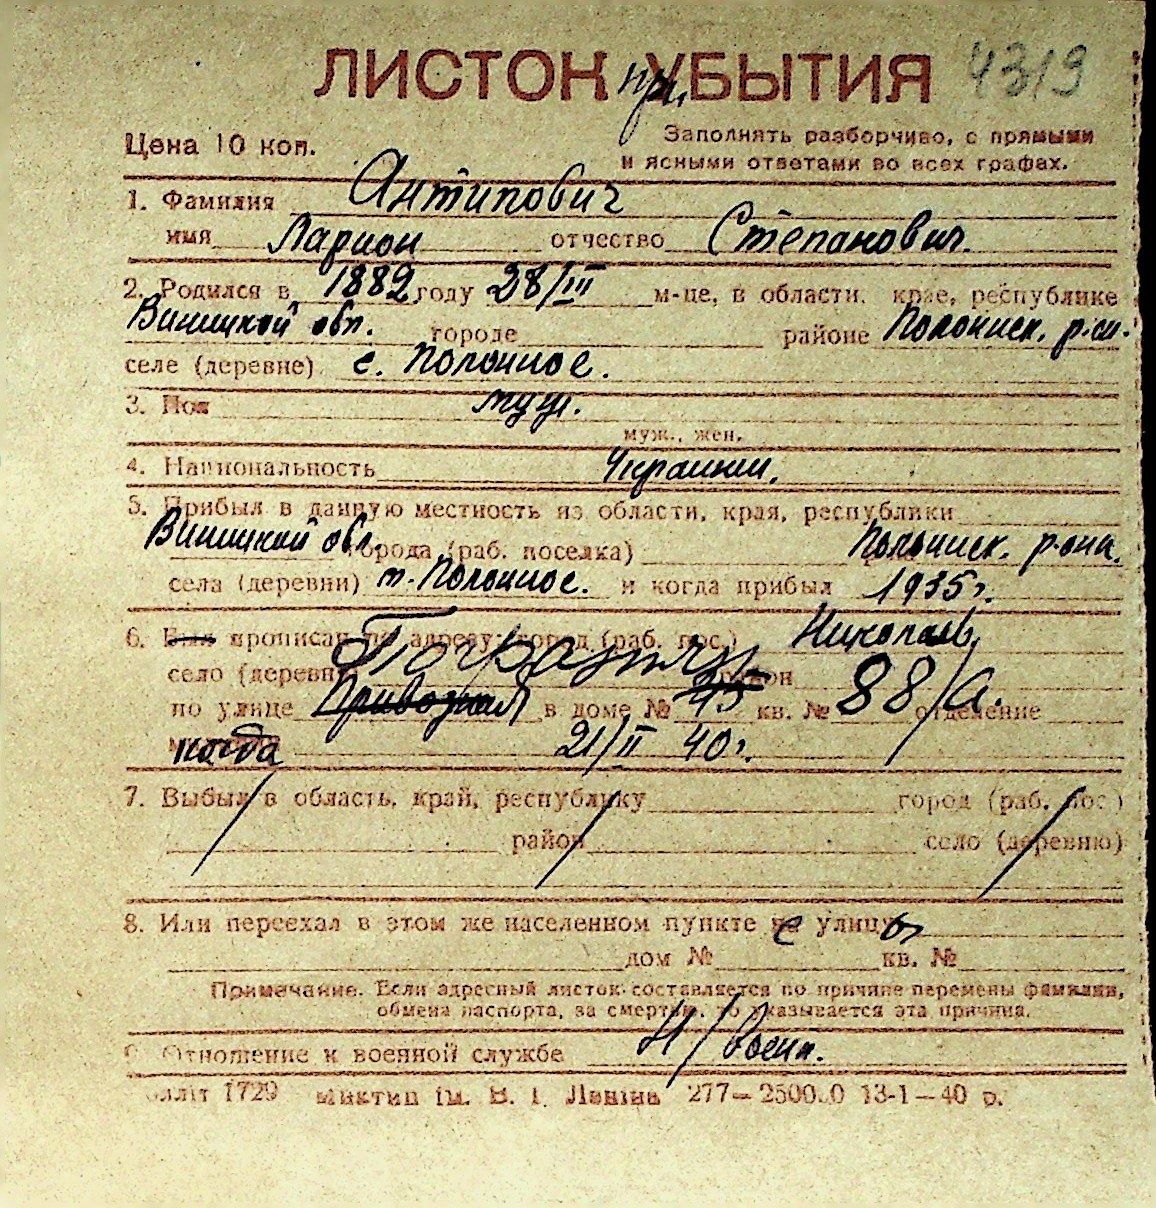 ЛИСТОК при УБЫТИЯ 4319
Цена 10 коп. Заполнять разборчиво, с прямыми
и ясными ответами во всех графах.
1. Фамилия Антипович
имя Ларион отчество Степанович
2. Родился в 1882 году 28/III м-це, в области, крае, республике
Виницкой обл. городе районе Полонск. р-он.
селе (деревне) с. Полонное.
3. Пол муж.
муж., жен.
4. Национальность Украинец.
5. Прибыл в данную местность из области, края, республики
Виницкой обл. города (раб. поселка) Полонск. р-она.
села (деревни) м. Полонное. и когда прибыл 1935 г.
6. Был прописан по адресу: город (раб. пос.) Николаев
село (деревня) район
по улице Привозная в доме № 45 кв. № 88/а. отделение
когда 21/II 40 г.
7. Выбыл в область, край, республику город (раб. пос.)
район село (деревню)
8. Или переехал в этом же населенном пункте с улицы
дом № кв. №
Примечание. Если адресный листок составляется по причине перемены фамилии,
обмена паспорта, за смертью, то указывается эта причина.
9. Отношение к военной службе Н/Воен.
1729 ім. В. І. Леніна 277— 13-1—40 р.